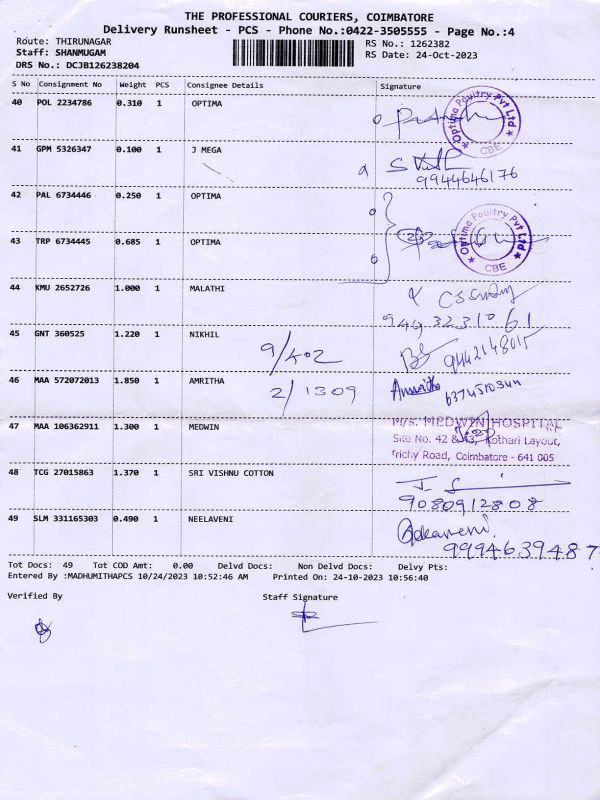 THE PROFESSIONAL COURIERS, COIMBATORE
Delivery Runsheet - PCS - Phone No.:0422-3505555 - Page No.:4
Route: THIRUNAGAR
RS No.: 1262382
Staff: SHANMUGAM
RS Date: 24-Oct-2023
DRS No.: DCJB126238204
S No Consignment No Weight PCS Consignee Details Signature
40 POL 2234786 0.310 1 OPTIMA
Optima Poultry Pvt Ltd
CBE
41 GPM 5326347 0.100 1 J MEGA
9944646176
42 PAL 6734446 0.250 1 OPTIMA
43 TRP 6734445 0.685 1 OPTIMA
Optima Poultry Pvt Ltd
CBE
44 KMU 2652726 1.000 1 MALATHI
45 GNT 360525 1.220 1 NIKHIL
9/402
9442148015
46 MAA 572072013 1.850 1 AMRITHA
2/1309
Amritha
47 MAA 106362911 1.300 1 MEDWIN
M/S. MEDWIN HOSPITAL
Site No. 42 & 43, Kothari Layout,
Trichy Road, Coimbatore - 641 005
48 TCG 27015863 1.370 1 SRI VISHNU COTTON
9080912808
49 SLM 331165303 0.490 1 NEELAVENI
9994639487
Tot Docs: 49 Tot COD Amt: 0.00 Delvd Docs: Non Delvd Docs: Delvy Pts:
Entered By :MADHUMITHAPCS 10/24/2023 10:52:46 AM Printed On: 24-10-2023 10:56:40
Verified By Staff Signature